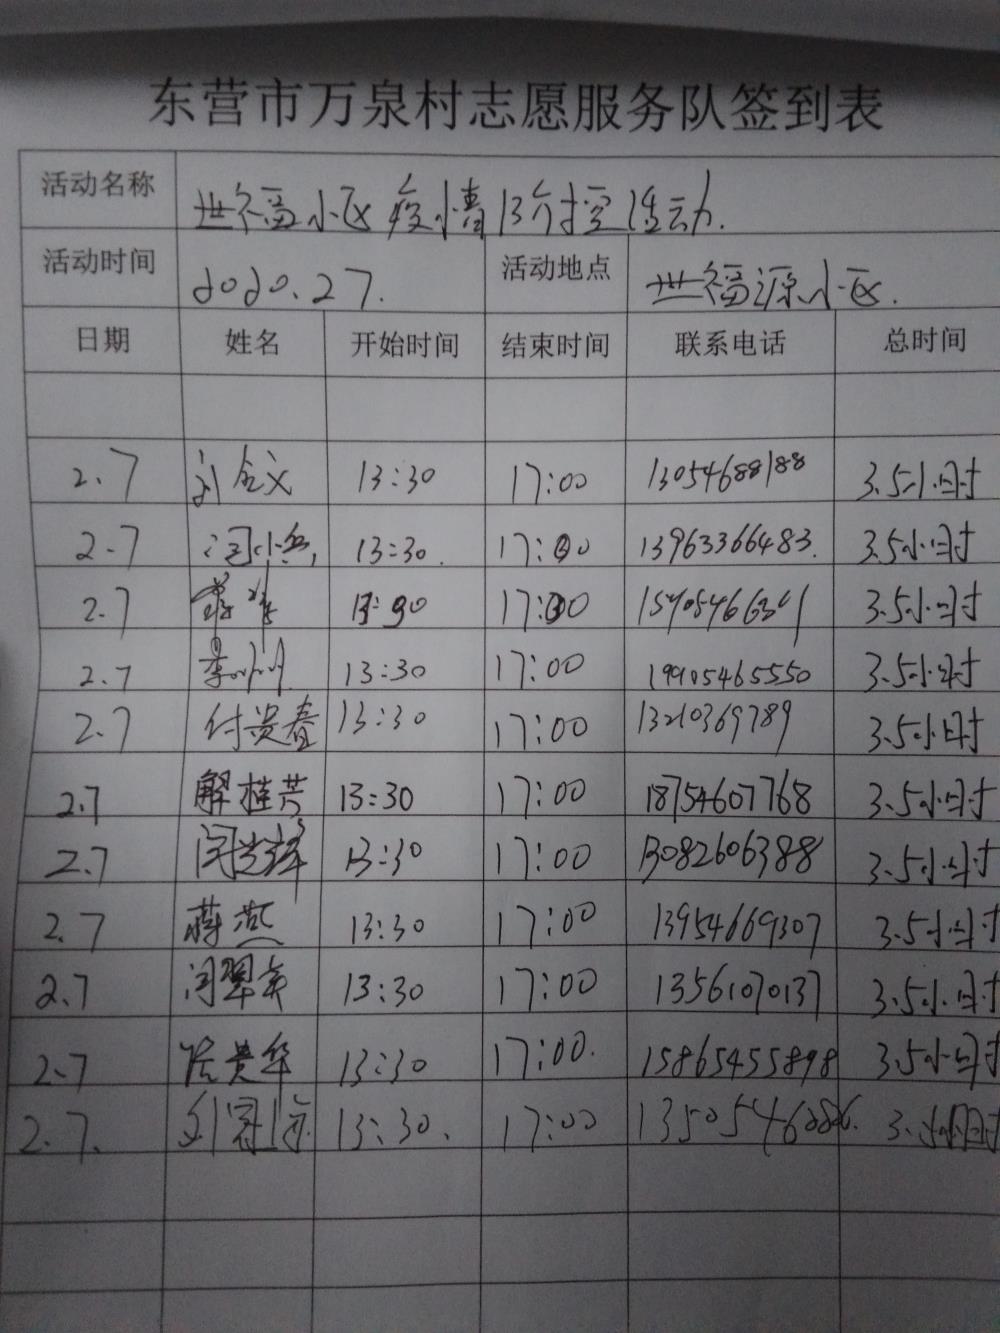 东营市万泉村志愿服务队签到表
活动名称 世福小区疫情防控活动.
活动时间 2020.2.7. 活动地点 世福源小区.
日期 姓名 开始时间 结束时间 联系电话 总时间
2.7 刘金义 13:30 17:00 13054688188 3.5小时
2.7 13:30. 17:00 13963366483. 3.5小时
2.7 13:30 17:00 3.5小时
2.7 13:30 17:00 19905465550 3.5小时
2.7 付贵春 13:30 17:00 13210369789 3.5小时
2.7 解桂芳 13:30 17:00 18754607768 3.5小时
2.7 13:30 17:00 13082606388 3.5小时
2.7 蒋燕 13:30 17:00 13954669307 3.5小时
2.7 闫翠英 13:30 17:00 13561070137 3.5小时
2.7 张贵华 13:30 17:00. 15865455898 3.5小时
2.7. 13:30. 17:00 3.5小时